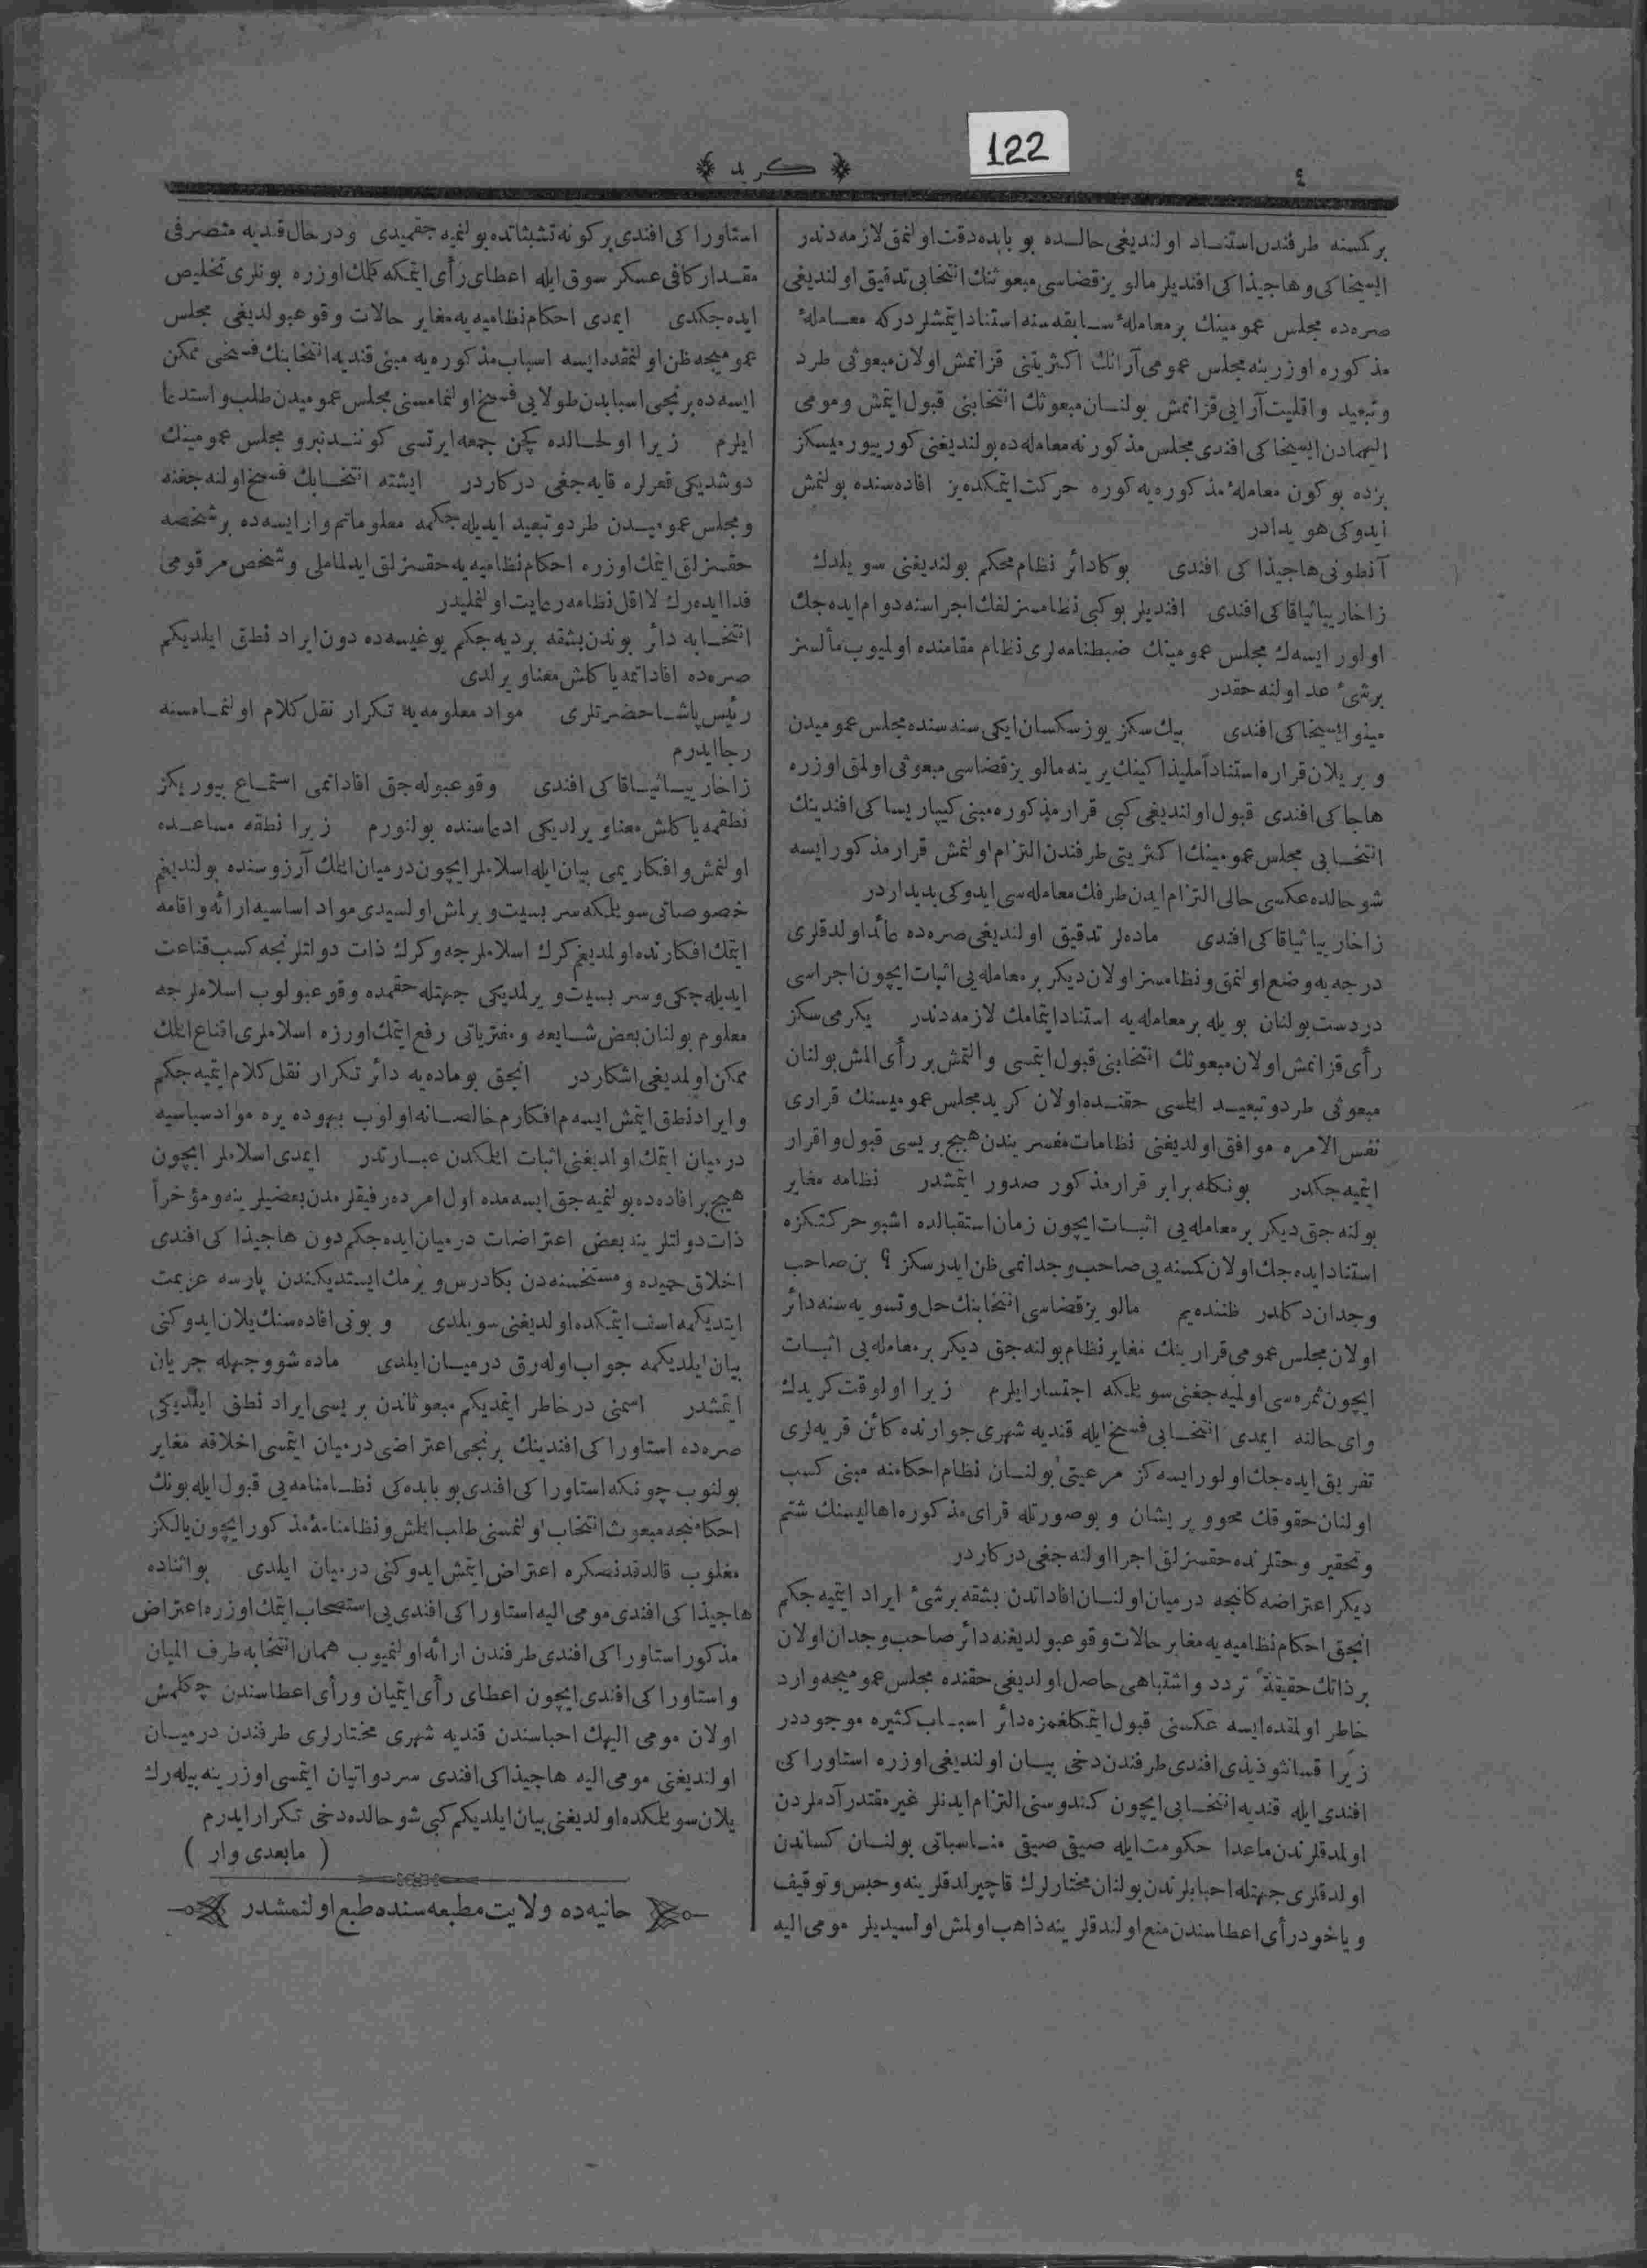 122
٤
﴿ كريد ﴾
بر كمسنه طرفندن استناد اولنديغى حالده بو بابده دقت اولنمق لازمه دندر
ايسيخاكى و هاجيذاكى افنديلر مالويز قضاسى مبعوثنك انتخابى تدقيق اولنديغى
صره ده مجلس عمومينك بر معاملهٔ سابقه سنه استناد ايتمشلردركه معاملهٔ
مذكوره اوزرينه مجلس عمومى آرانك اكثريتنى قزانمش اولان مبعوثى طرد
وتبعيد و اقليت آرايى قزانمش بولنان مبعوثك انتخابنى قبول ايتمش و مومى
اليهمادن ايسيخاكى افندى مجلس مذكور نه معامله ده بولنديغنى كورييورميسكز
بزده بوكون معاملهٔ مذكوره يه كوره حركت ايتمكده يز افاده سنده بولنمش
ايدوكى هويدادر
آنطونى هاجيذاكى افندى بوكا دائر نظام محكم بولنديغنى سويلدك
زاخارييانياقاكى افندى افنديلر بوكبى نظامسزلغك اجراسنه دوام ايده جك
اولور ايسه ك مجلس عمومينك ضبطنامه لرى نظام مقامنده اولميوب مآلسز
برشىء عد اولنه جقدر
مينو ايسيخاكى افندى بيك سكز يوز سكسان ايكى سنه سنده مجلس عموميدن
ويريلان قراره استناداً مليذاكينك يرينه مالويز قضاسى مبعوثى اولمق اوزره
هاجاكى افندى قبول اولنديغى كبى قرار مذكوره مبنى كيپاريساكى افندينك
انتخابى مجلس عمومينك اكثريتى طرفندن التزام اولنمش قرار مذكور ايسه
شو حالده عكسى حالى التزام ايدن طرفك معامله سى ايدوكى بديداردر
زاخارييانياقاكى افندى ماده لر تدقيق اولنديغى صره ده عائد اولدقلرى
درجه يه وضع اولنمق و نظامسز اولان ديكر بر معامله يى اثبات ايچون اجراسى
دردست بولنان بويله بر معامله يه استناد ايتمامك لازمه دندر يكرمى سكز
رأى قزانمش اولان مبعوثك انتخابنى قبول ايتمسى و التمش بر رأى المش بولنان
مبعوثى طرد و تبعيد ايلمسى حقنده اولان كريد مجلس عموميسنك قرارى
نفس الامره موافق اولديغنى نظامات مفسريندن هيچ بريسى قبول و اقرار
ايتميه جكدر بونكله برابر قرار مذكور صدور ايتمشدر نظامه مغاير
بولنه جق ديكر بر معامله يى اثبات ايچون زمان استقبالده اشبو حركتكزه
استناد ايده جك اولان كمسنه يى صاحب وجدانمى ظن ايدرسكز ؟ بن صاحب
وجدان دكلدر ظننده يم مالويز قضاسى انتخابنك حل و تسويه سنه دائر
اولان مجلس عمومى قرارينك مغاير نظام بولنه جق ديكر بر معامله يى اثبات
ايچون ثمره سى اولميه جغنى سويلمكه اجتسار ايلرم زيرا اولوقت كريدك
واى حالنه ايمدى انتخابى فسخ ايله قنديه شهرى جوارنده كائن قريه لرى
تفريق ايده جك اولور ايسه كز مرعيتى بولنان نظام احكامنه مبنى كسب
اولنان حقوقك محو و پريشان و بوصورتله قراى مذكوره اهاليسنك شتم
وتحقير و حقلرنده حقسزلق اجرا اولنه جغى دركاردر
ديكر اعتراضه كلنجه درميان اولنان افاداتدن بشقه برشىء ايراد ايتميه جكم
انجق احكام نظاميه يه مغاير حالات وقوعبولديغنه دائر صاحب وجدان اولان
بر ذاتك حقيقةً تردد و اشتباهى حاصل اولديغى حقنده مجلس عموميجه وارد
خاطر اولمقده ايسه عكسنى قبول ايتمكلغمزه دائر اسباب كثيره موجوددر
زيرا قسانثوذيذى افندى طرفندن دخى بيان اولنديغى اوزره استاوراكى
افندى ايله قنديه انتخابى ايچون كندوسنى التزام ايدنلر غير مقتدر آدملردن
اولمدقلرندن ماعدا حكومت ايله صيقى صيقى مناسباتى بولنان كساندن
اولدقلرى جهتله احبابلرندن بولنان مختارلرك قاچيرلدقلرينه و حبس و توقيف
و ياخود رأى اعطاسندن منع اولندقلرينه ذاهب اولمش اولسيديلر مومى اليه
استاوراكى افندى بر كونه تشبثاتده بولنميه جقميدى و درحال قنديه متصرفى
مقدار كافى عسكر سوق ايله اعطاى رأى ايتمكه كلمك اوزره بونلرى تخليص
ايده جكدى ايمدى احكام نظاميه يه مغاير حالات وقوعبولديغى مجلس
عموميجه ظن اولنمقده ايسه اسباب مذكوره يه مبنى قنديه انتخابنك فسخى ممكن
ايسه ده برنجى اسبابدن طولايى فسخ اولنمامسنى مجلس عموميدن طلب و استدعا
ايلرم زيرا اولحالده كچن جمعه ايرتسى كونندنبرو مجلس عمومينك
دوشديكى قعرلره قايه جغى دركاردر ايشته انتخابك فسخ اولنه جغنه
و مجلس عموميدن طرد و تبعيد ايديله جكمه معلوماتم وار ايسه ده بر شخصه
حقسزلق ايتمك اوزره احكام نظاميه يه حقسزلق ايدلماملى و شخص مرقومى
فدا ايده رك لااقل نظامه رعايت اولنمليدر
انتخابه دائر بوندن بشقه برديه جكم يوغيسه ده دون ايراد نطق ايلديكم
صره ده افاداتمه ياكلش معنا ويرلدى
رئيس پاشا حضرتلرى مواد معلومه يه تكرار نقل كلام اولنمامسنه
رجا ايدرم
زاخارييانياقاكى افندى وقوعبوله جق افاداتمى استماع بيوريكز
نطقمه ياكلش معنا ويرلديكى ادعاسنده بولنورم زيرا نطقه مساعده
اولنمش و افكاريمى بيان ايله اسلاملر ايچون درميان ايتمك آرزوسنده بولنديغم
خصوصاتى سويلمكه سربسيت ويرلمش اولسيدى مواد اساسيه ارائه و اقامه
ايتمك افكارنده اولمديغم كرك اسلاملرجه و كرك ذات دولتلرنجه كسب قناعت
ايديله جكى و سربسيت ويرلمديكى جهتله حقمده وقوعبولوب اسلاملرجه
معلوم بولنان بعض شايعه و مفترياتى رفع ايتمك اوزره اسلاملرى اقناع ايتمك
ممكن اولمديغى اشكاردر انجق بوماده يه دائر تكرار نقل كلام ايتميه جكم
و ايراد نطق ايتمش ايسه م افكارم خالصانه اولوب بيهوده يره مواد سياسيه
درميان ايتمك اولمديغنى اثبات ايلمكدن عبارتدر ايمدى اسلاملر ايچون
هيچ بر افاده ده بولنميه جق ايسه مده اول امرده رفيقلرمدن بعضيلرينه و مؤخراً
ذات دولتلرينه بعض اعتراضات درميان ايده جكم دون هاجيذاكى افندى
اخلاق حميده و مستحسنه دن بكا درس ويرمك ايستديكندن پارسه عزيمت
ايتديكمه اسف ايتمكده اولديغنى سويلدى و بونى افاده سنك يلان ايدوكنى
بيان ايلديكمه جواب اوله رق درميان ايلدى ماده شو وجهله جريان
ايتمشدر اسمنى درخاطر ايتمديكم مبعوثاندن بريسى ايراد نطق ايلديكى
صره ده استاوراكى افندينك برنجى اعتراضى درميان ايتمسى اخلاقه مغاير
بولنوب چونكه استاوراكى افندى بو بابده كى نظامنامه يى قبول ايله بونك
احكامنجه مبعوث انتخاب اولنمسنى طلب ايتمش و نظامنامهٔ مذكور ايچون يالكز
مغلوب قالدقدنصكره اعتراض ايتمش ايدوكنى درميان ايلدى بو اثناده
هاجيذاكى افندى مومى اليه استاوراكى افندى يى استصحاب ايتمك اوزره اعتراض
مذكور استاوراكى افندى طرفندن ارائه اولنميوب همان انتخابه طرف الميان
و استاوراكى افندى ايچون اعطاى رأى ايتميان و رأى اعطاسندن چكلمش
اولان مومى اليهك احباسندن قنديه شهرى مختارلرى طرفندن درميان
اولنديغنى مومى اليه هاجيذاكى افندى سرد و اتيان ايتمسى اوزرينه بيله رك
يلان سويلمكده اولديغنى بيان ايلديكم كبى شو حالده دخى تكرار ايدرم
( مابعدى وار )
حانيه ده ولايت مطبعه سنده طبع اولنمشدر